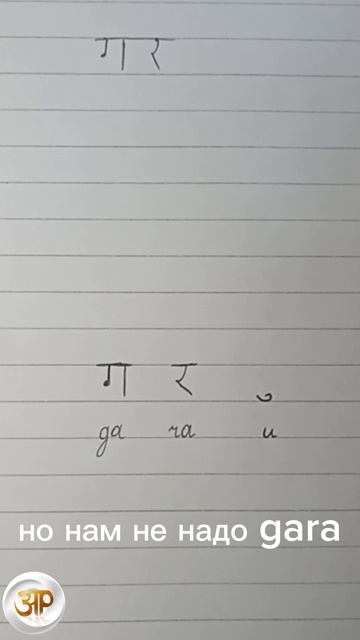 गर
ग र ु
ga ra u
но нам не надо gara